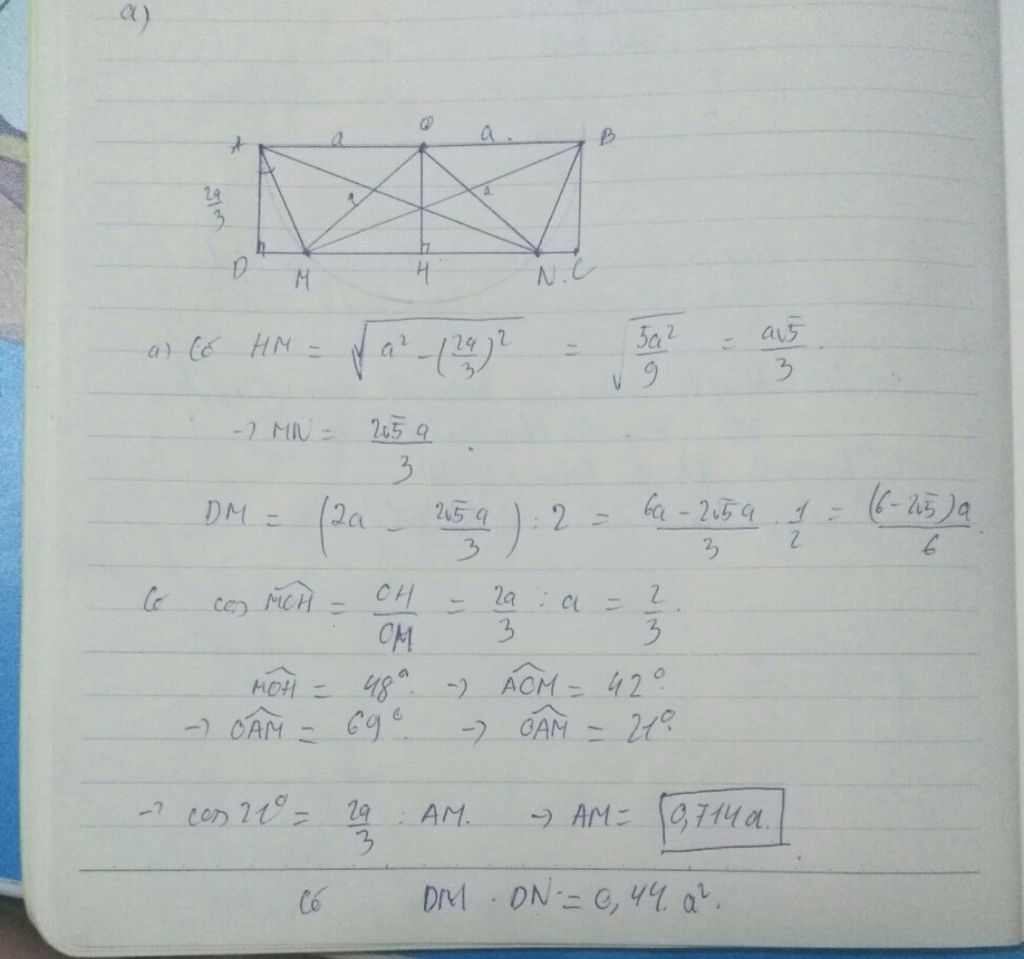 a)
A a O B
a .
2a/3 a a
D M H N . C
a) Có HM = √(a² − (2a/3)²) = √(5a²/9) = a√5/3 .
→ MN = 2√5 a/3 .
DM = (2a − 2√5 a/3) : 2 = (6a − 2√5 a)/3 . 1/2 = (6 − 2√5)a/6 .
Có cos MOH = OH/OM = 2a/3 : a = 2/3 .
MOH = 48° . → AOM = 42° .
→ OAM = 69° . → OAM = 21° .
→ cos 21° = 2a/3 : AM . → AM = 0,714a .
Có DM . DN = 0,44 . a² .